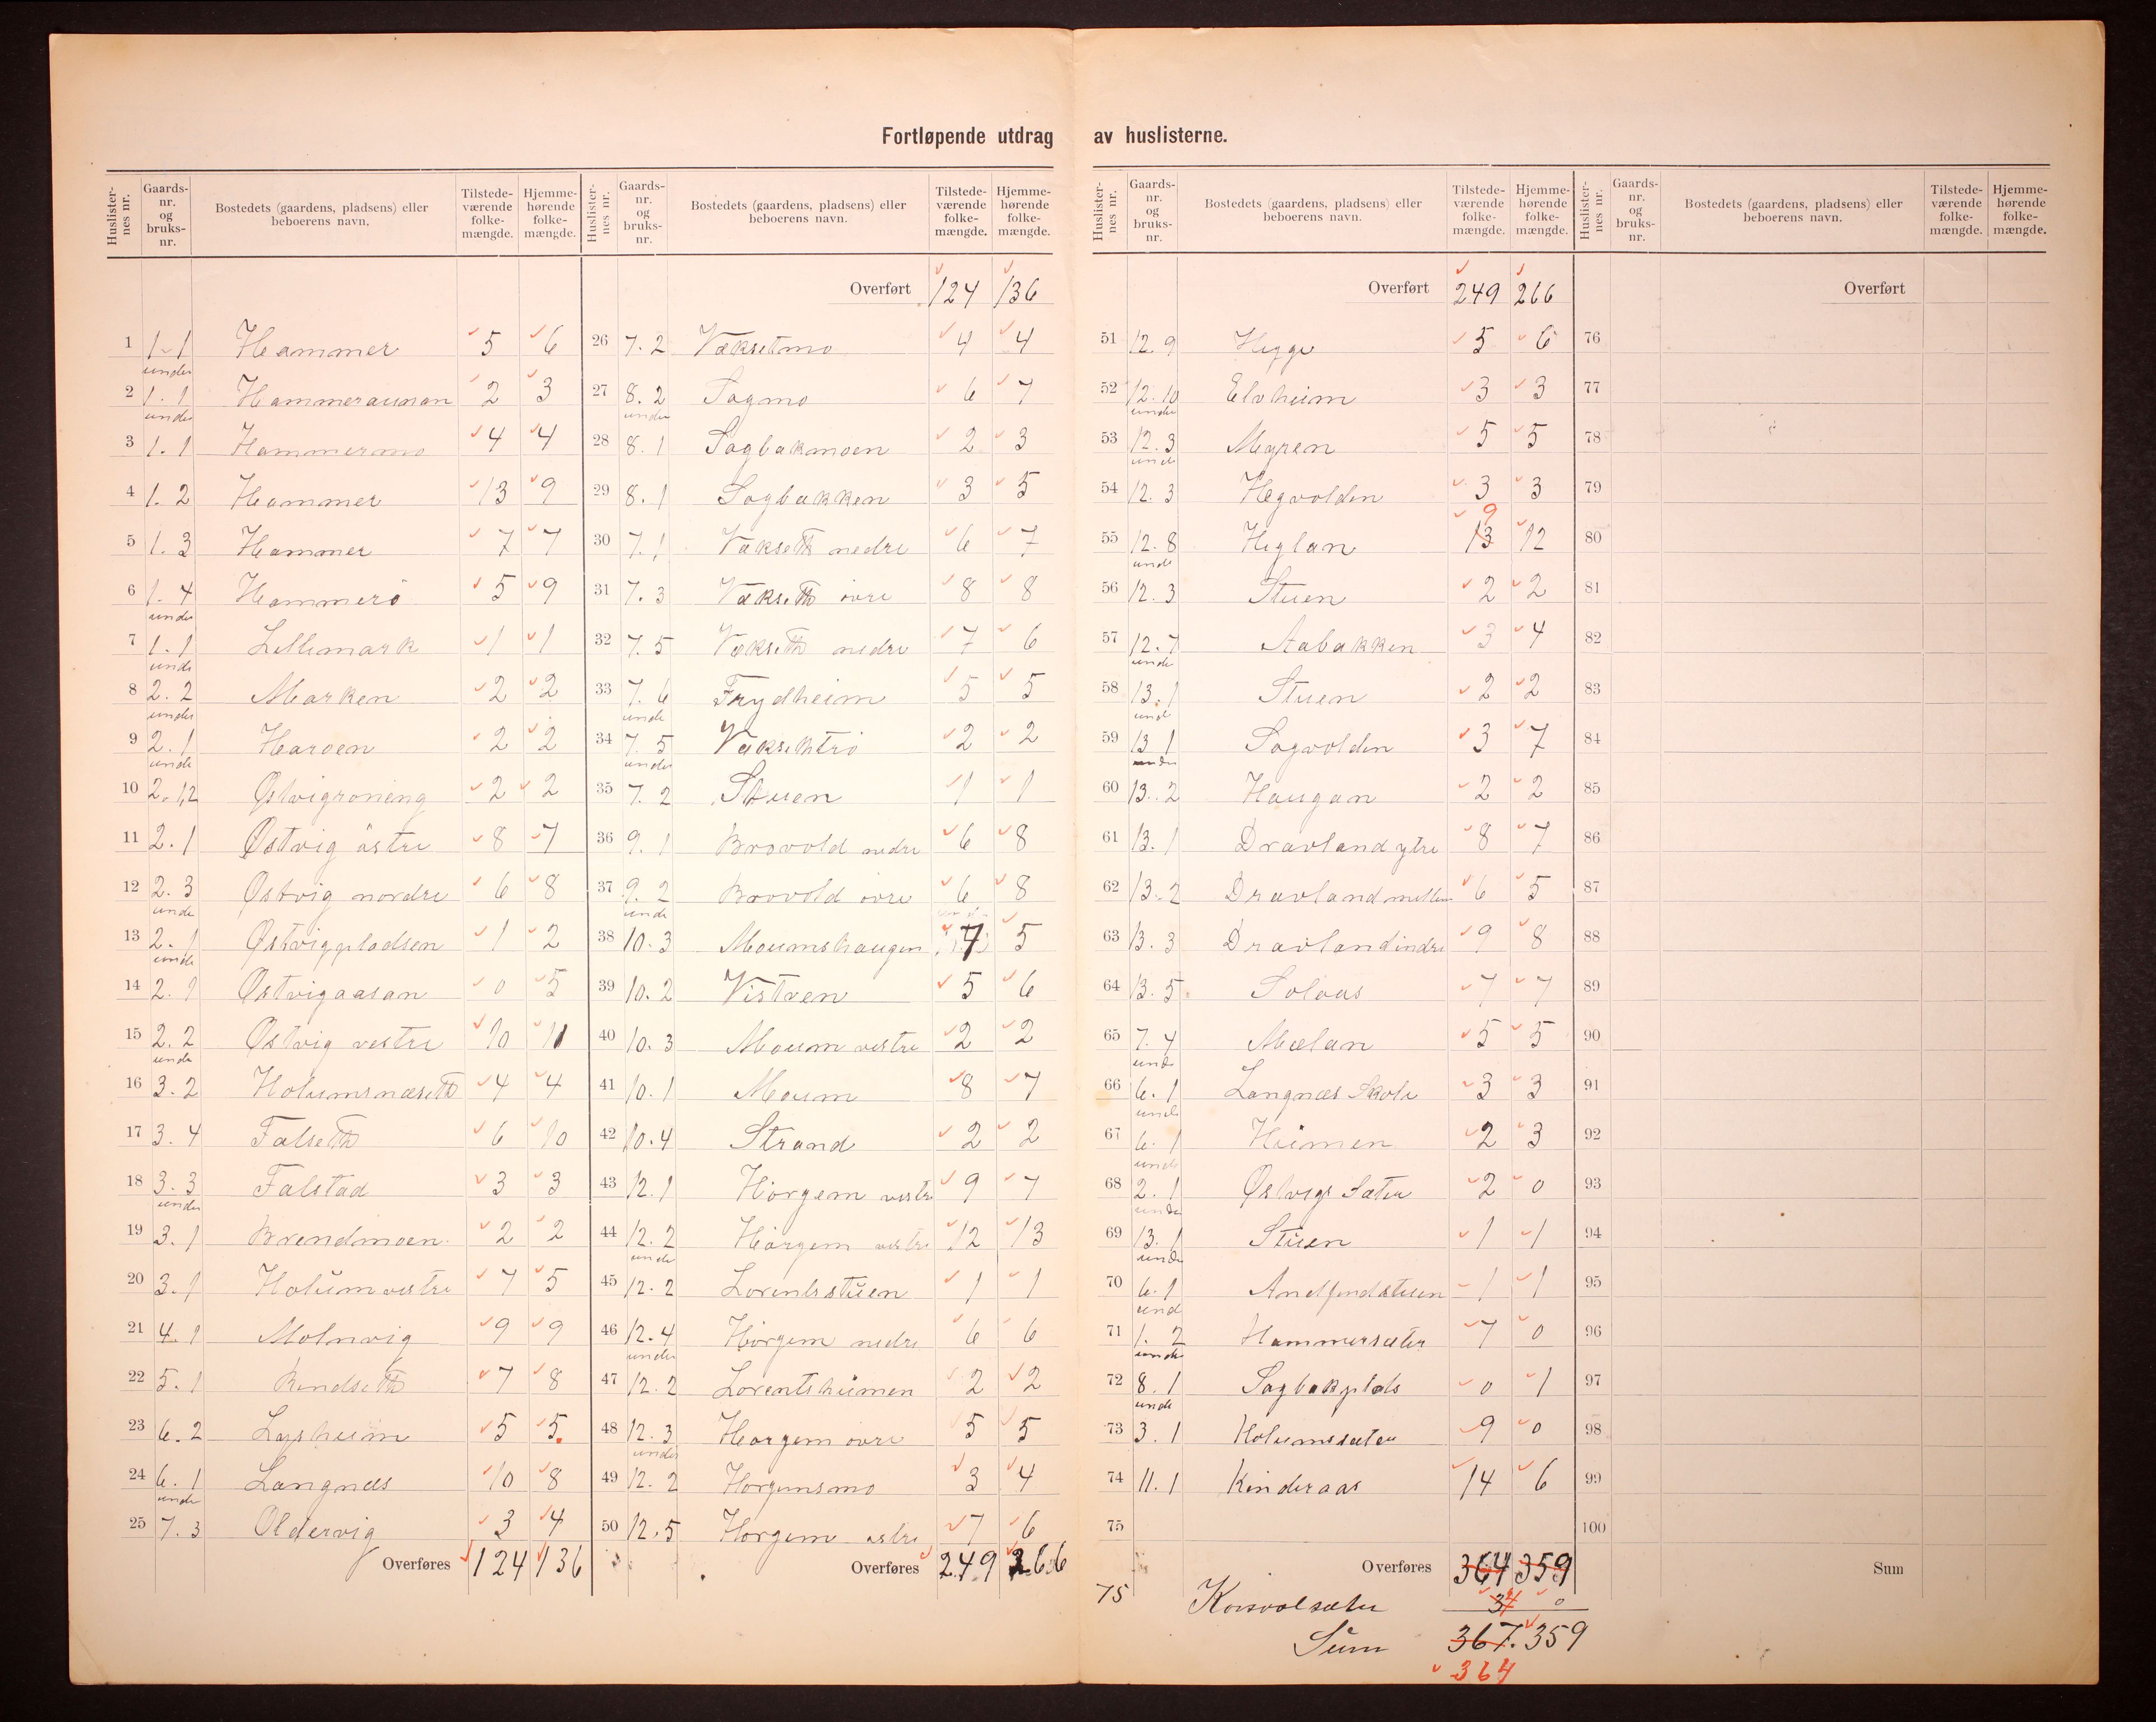 Fortløpende utdrag av huslisterne.
Huslister-nes nr. Gaards-nr. og bruks-nr. Bostedets (gaardens, pladsens) eller beboerens navn. Tilstede-værende folke-mængde. Hjemme-hørende folke-mængde.
1 1.1 Hammer 5 6
under
2 1.1 Hammeraunan 2 3
under
3 1.1 Hammermo 4 4
4 1.2 Hammer 13 9
5 1.3 Hammer 7 7
6 1.4 Hammerö 5 9
under
7 1.1 Lillemark 1 1
unde
8 2.2 Marken 2 2
under
9 2.1 Haroen 2 2
unde
10 2.12 Østvigröning 2 2
11 2.1 Østvig östre 8 7
12 2.3 Østvig nordre 6 8
unde
13 2.1 Østvigpladsen 1 2
unde
14 2.1 Østvigaasan 0 5
15 2.2 Østvig vestre 10 11
unde
16 3.2 Holumsnæseth 4 4
17 3.4 Falseth 6 10
18 3.3 Falstad 3 3
under
19 3.1 Brendmoen 2 2
20 3.1 Holum vestre 7 5
21 4.1 Molnvig 9 9
22 5.1 Rendseth 7 8
23 6.2 Lysheim 5 5.
24 6.1 Langnæs 10 8
unde
25 7.3 Oldervig 3 4
Overføres 124 136
Huslister-nes nr. Gaards-nr. og bruks-nr. Bostedets (gaardens, pladsens) eller beboerens navn. Tilstede-værende folke-mængde. Hjemme-hørende folke-mængde.
Overført 124 136
26 7.2 Væksetmo 4 4
27 8.2 Sagmo 6 7
under
28 8.1 Sagbakmoen 2 3
29 8.1 Sagbakken 3 5
30 7.1 Vækseth nedre 6 7
31 7.3 Vækseth övre 8 8
32 7.5 Vækseth nedre 7 6
33 7.6 Frydheim 5 5
unde
34 7.5 Væksehtrö 2 2
under
35 7.2 Stuen 1 1
36 9.1 Brovold nedre 6 8
37 9.2 Brovold övre 6 8
unde
38 10.3 Moumshaugen 7 5
39 10.2 Vistven 5 6
40 10.3 Moum vestre 2 2
41 10.1 Moum 8 7
42 10.4 Strand 2 2
43 12.1 Hörgem vestre 9 7
44 12.2 Hörgem vestre 12 13
unde
45 12.2 Lorentsstuen 1 1
46 12.4 Hörgem nedre 6 6
under
47 12.2 Lorentsheimen 2 2
48 12.3 Hörgem övre 5 5
under
49 12.2 Hörgemsmo 3 4
50 12.5 Hörgem östre 7 6
Overføres 249 266
Huslister-nes nr. Gaards-nr. og bruks-nr. Bostedets (gaardens, pladsens) eller beboerens navn. Tilstede-værende folke-mængde. Hjemme-hørende folke-mængde.
Overført 249 266
51 12.9 Hegge 5 6
52 12.10 Elvheim 3 3
unde
53 12.3 Myren 5 5
unde
54 12.3 Hegvolden 3 3
9
55 12.8 Heglan 13 12
unde
56 12.3 Stuen 2 2
57 12.7 Aabakken 3 4
unde
58 13.1 Stuen 2 2
und
59 13.1 Sagvolden 3 7
under
60 13.2 Haugan 2 2
61 13.1 Dravland ytre 8 7
62 13.2 Dravland mellem 6 5
63 13.3 Dravland indre 9 8
64 13.5 Solaas 7 7
65 7.4 Mælan 5 5
unde
66 6.1 Langnæs Skole 3 3
unde
67 6.1 Heimen 2 3
unde
68 2.1 Østvigs Sæter 2 0
unde
69 13.1 Stuen 1 1
unde
70 6.1 Andfindstuen 1 1
und
71 1.2 Hammersæter 7 0
unde
72 8.1 Sagbakplads 0 1
unde
73 3.1 Holumssæter 9 0
74 11.1 Kinderaas 14 6
75
Overføres 364 359
75 Korsvolsæter 34 0
Sum 367. 359
364
Huslister-nes nr. Gaards-nr. og bruks-nr. Bostedets (gaardens, pladsens) eller beboerens navn. Tilstede-værende folke-mængde. Hjemme-hørende folke-mængde.
Overført
76
77
78
79
80
81
82
83
84
85
86
87
88
89
90
91
92
93
94
95
96
97
98
99
100
Sum